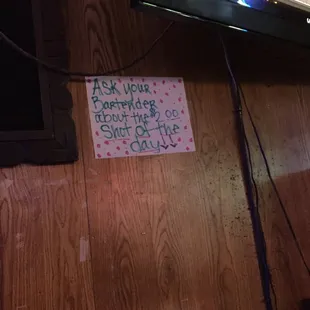 Ask your
Bartender
about the $2.00
Shot of the
day↓↓